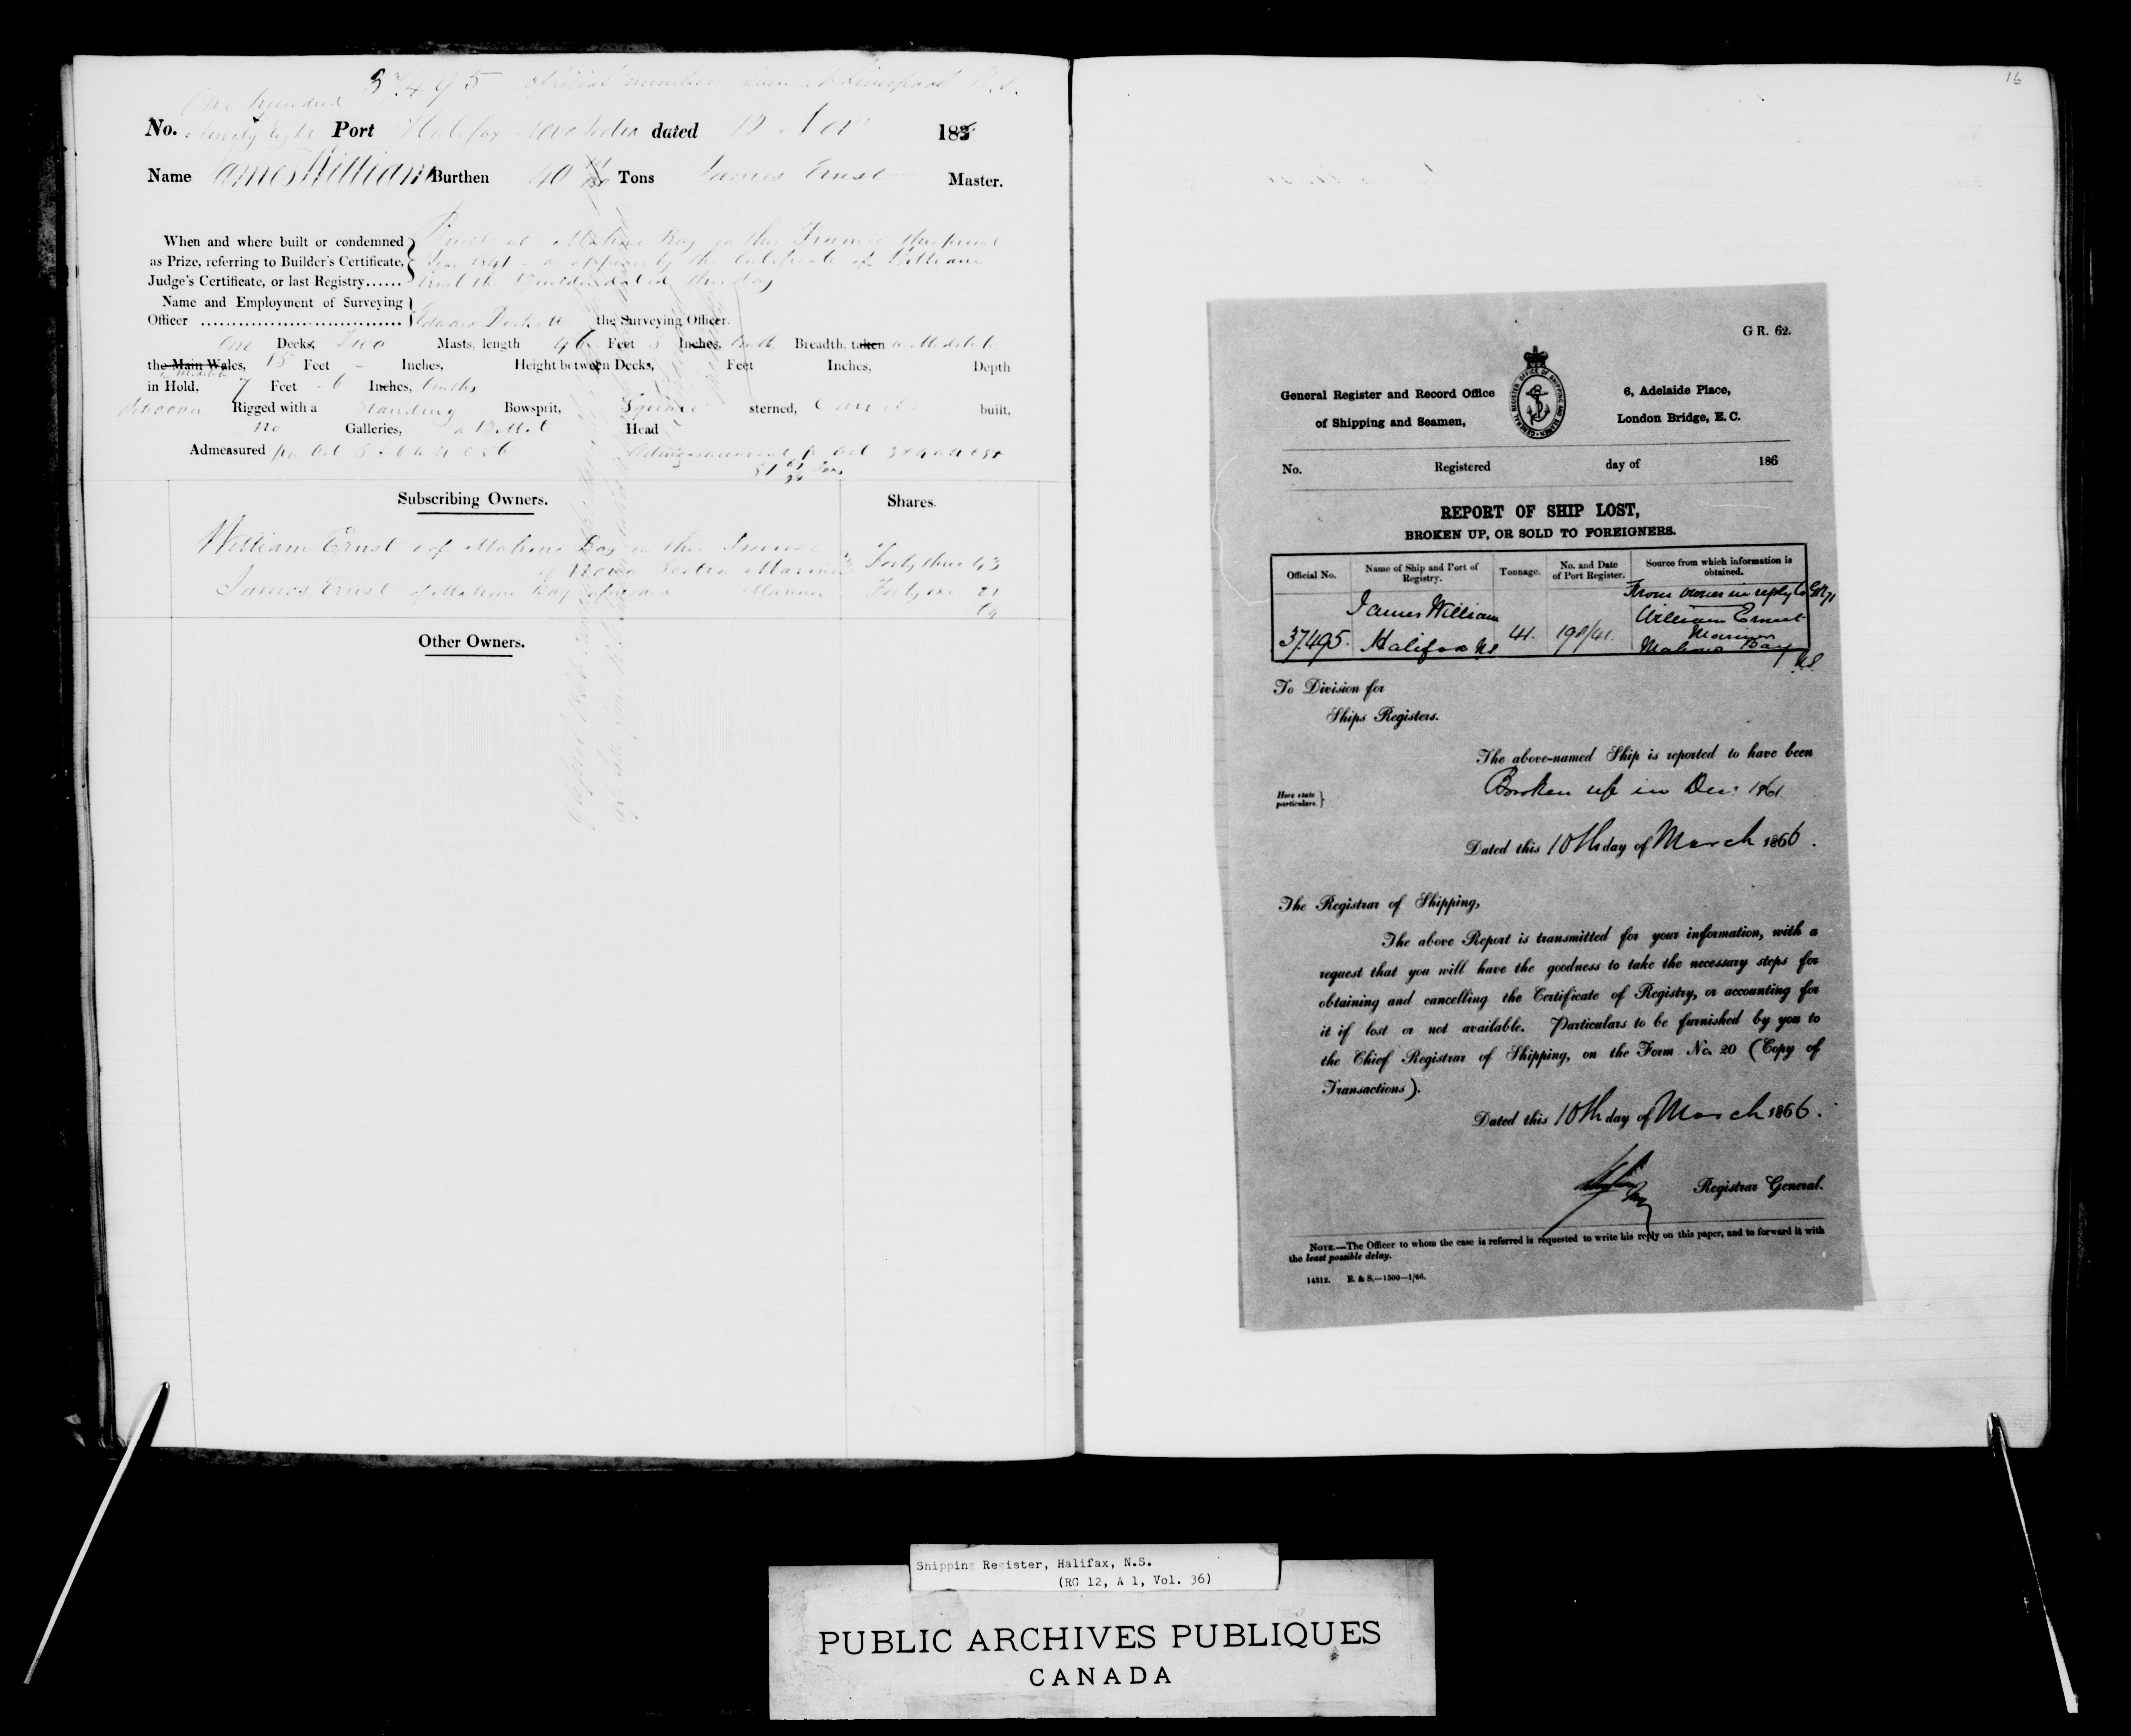 37,495 official number given at Liverpool N.S.
One hundred
No. Ninety eight Port Halifax Nova Scotia dated 12 Nov 183
Name James William Burthen 40 Tons James Ernst Master.
When and where built or condemned Built at Mahone Bay in this Province the present
as Prize, referring to Builder's Certificate, Year 1841 as appears by the Certificate of William
Judge's Certificate, or last Registry...... Ernst the Builder dated this day
Name and Employment of Surveying
Officer ................................ Edward the Surveying Officer.
One Decks, Two Masts, length 46 Feet 5 Inches, tenths Breadth, taken
the Main Wales, 15 Feet - Inches, Height between Decks, Feet Inches, Depth
in Hold, 7 Feet 6 Inches, tenths
Schooner Rigged with a Standing Bowsprit, Square sterned, Carvel built,
no Galleries, a Billet Head
Admeasured per Act
Subscribing Owners. Shares.
William Ernst of Mahone Bay in this Province
of Nova Scotia Mariner Forty three 43
James Ernst of Mahone Bay aforesaid Mariner 21
64
Other Owners.
16
G R. 62.
General Register and Record Office
of Shipping and Seamen,
GENERAL REGISTER OFFICE OF SHIPPING AND SEAMEN
6, Adelaide Place,
London Bridge, E.C.
No. Registered day of 186
REPORT OF SHIP LOST,
BROKEN UP, OR SOLD TO FOREIGNERS.
Official No. Name of Ship and Port of Registry. Tonnage. No. and Date of Port Register. Source from which information is obtained.
From owner in reply to GR71
James William William Ernst
37,495. Halifax NS 41. 198/41. Mariner
Mahone Bay
NS.
To Division for
Ships Registers.
The above-named Ship is reported to have been
Here state particulars. Broken up in Dec: 1861.
Dated this 10th day of March 1866.
The Registrar of Shipping,
The above Report is transmitted for your information, with a
request that you will have the goodness to take the necessary steps for
obtaining and cancelling the Certificate of Registry, or accounting for
it if lost or not available. Particulars to be furnished by you to
the Chief Registrar of Shipping, on the Form No. 20 (Copy of
Transactions).
Dated this 10th day of March 1866.
Registrar General.
NOTE.—The Officer to whom the case is referred is requested to write his reply on this paper, and to forward it with
the least possible delay.
14312. E. & S.—1500—1/66.
Shipping Register, Halifax, N.S.
(RG 12, A 1, Vol. 36)
PUBLIC ARCHIVES PUBLIQUES
CANADA